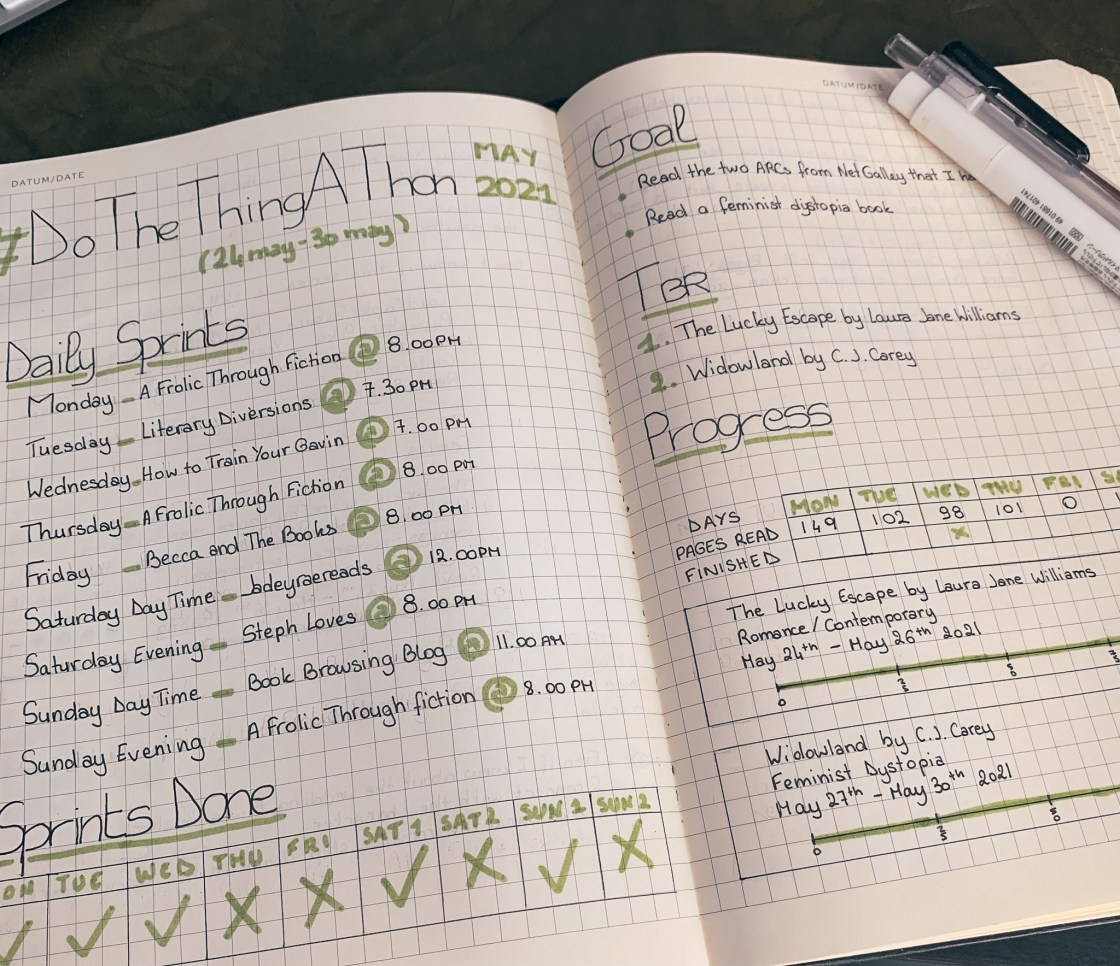 DATUM/DATE
#DoTheThingAThon
MAY
2021
(24 may - 30 may)
Daily Sprints
Monday - A Frolic Through Fiction @ 8.00 PM
Tuesday - Literary Diversions @ 7.30 PM
Wednesday - How to Train Your Gavin @ 7.00 PM
Thursday - A Frolic Through Fiction @ 8.00 PM
Friday - Becca and The Books @ 8.00 PM
Saturday DayTime - Jadeyraereads @ 12.00 PM
Saturday Evening - Steph Loves @ 8.00 PM
Sunday DayTime - Book Browsing Blog @ 11.00 AM
Sunday Evening - A Frolic Through fiction @ 8.00 PM
Sprints Done
ON TUE WED THU FRI SAT 1 SAT 2 SUN 1 SUN 2
✓ ✓ ✓ X X ✓ X ✓ X
DATUM/DATE
Goal
Read the two ARCs from NetGalley that I ha
Read a feminist dystopia book
TBR
1. The Lucky Escape by Laura Jane Williams
2. Widowland by C.J. Carey
Progress
DAYS MON TUE WED THU FRI
PAGES READ 149 102 98 101 0
FINISHED X
The Lucky Escape by Laura Jane Williams
Romance/Contemporary
May 24th - May 26th 2021
0 25 50
Widowland by C.J. Carey
Feminist Dystopia
May 27th - May 30th 2021
0 25 50